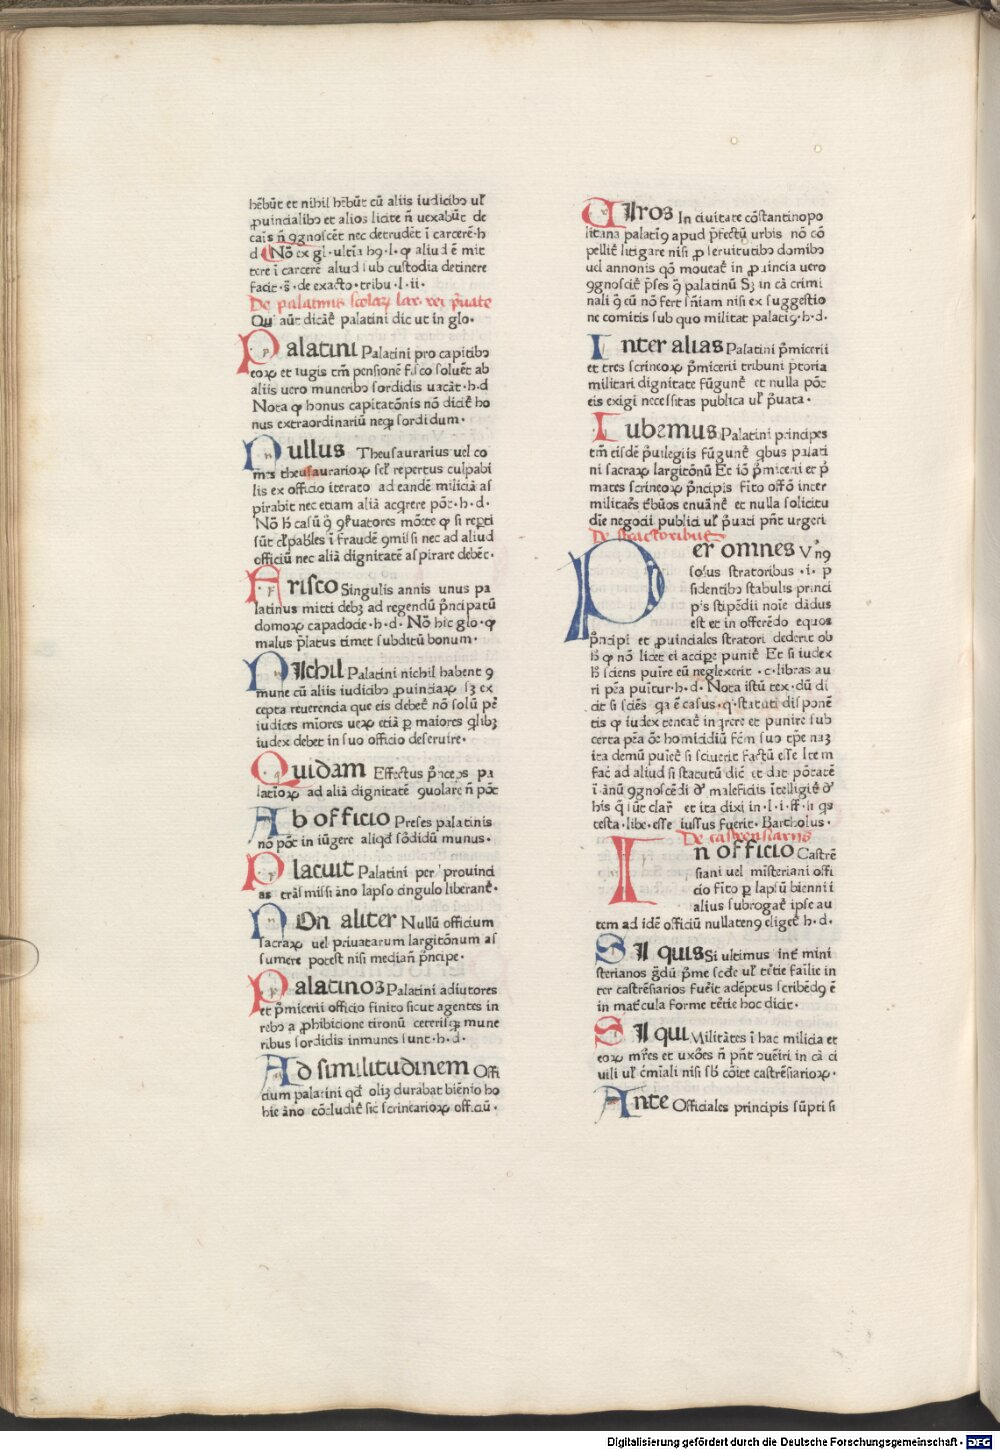 hēbūt et nihil hēbūt cū aliis iudicibꝰ uł
ꝓuincialibꝰ et alios licite n̄ uexabūt de
cais n̄ ꝯgnoscēt nec detrudēt ī carcerē·h
d· Nō ex gl·ultīa hꝰ·l·ꝙ aliud ē mit
tere ī carcerē aliud sub custodia detinere
facit·s̄·de exacto·tribu·l·ii·
De palatinis sacraꝝ lar. rei p̄uate
Qui aūt dicāt̄ palatini dic ut in glo·
Palatini Palatini pro capitibꝰ
eoꝝ et iugis tm̄ pensionē fisco soluēt ab
aliis uero muneribꝰ sordidis uacāt·h·d
Nota ꝙ honus capitatōnis nō dicit̄ ho
nus extraordinariū neqꝫ sordidum·
Nullus Theusaurarius uel co
mes theusaurarioꝝ sel repertus culpabi
lis ex officio iterato ad eandē miliciā as
pirabit nec etiam aliā acqrere pōt·h·d·
Nō h̄ casū ꝙ ꝯseruatores mōte ꝙ si repti
sūt clpabłes ī fraudē ꝯmissi nec ad aliud
officiū nec aliā dignitatē aspirare debēt·
Aristo Singulis annis unus pa
latinus mitti debꝫ ad regendū p̄ncipatū
domoꝝ capadocie·h·d· Nō hic glo·ꝙ
malus p̄latus timet subditū bonum·
Nichil Palatini nichil habent ꝯ
mune cū aliis iudicibꝰ ꝓuinciaꝝ sꝫ ex
cepta reuerencia que eis debet̄ nō solū pēt
iudices mīores ueꝝ etiā ꝑ maiores qlibꝫ
iudex debet in suo officio deseruire·
Quidam Effectus p̄nceps pa
latinoꝝ ad aliā dignitatē ꝯuolare n̄ pōt
Ab officio Preses palatinis
nō pōt in iūgere aliqd sōdidū munus·
Placuit Palatini per prouinci
as trās̄missi āno lapso cingulo liberant̄·
Non aliter Nullū officium
sacraꝝ uel priuatarum largitōnum as
sumere potest nisi median̄ p̄ncipe·
Palatinoꝫ Palatini adiutores
et p̄micerii officio finito sicut agentes in
rebꝰ a ꝓhibicione tironū ceterisqꝫ mune
ribus sordidis inmunes sunt·h·d·
Ad similitudinem Offi
cium palatini qd̄ olī durabat biēnio ho
hie āno cōcludit̄ sic scrineарioꝝ officiū·
Tiros In ciuitate cōstantinopo
litana palatiꝰ apud p̄fectū urbis nō cō
pellit̄ litigare nisi ꝓ seruitutibꝰ domibꝰ
uel annonis qō mouēat̄ in ꝓuincia uero
ꝯgnoscit p̄ses ꝙ palatinū Sꝫ in cā crimi
nali ꝙ cū nō fert sn̄iam nisi ex suggestio
ne comitis sub quo militat palatiꝰ·h·d·
Inter alias Palatini p̄micerii
et tres scrineoꝝ p̄micerii tribuni p̄toria
militari dignitate fūgunt̄ et nulla pōt
eis exigi necessitas publica uł p̄uata·
Iubemus Palatini principes
tm̄ eisdē p̄uilegiis fūgunt̄ qbus palati
ni sacraꝝ largitōnū Et iō p̄micerii et p̄
mates scrineoꝝ p̄ncipis fito offō inter
militaēs t̄būos enuānt̄ et nulla solicitu
dīe negocii publici uł p̄uati pn̄t urgeri
De stratoribus
Per omnes Vnꝰ
solus stratoribus·i·p
sidentibꝰ stabulis princi
pis stipēdii noīe dādus
est et in offerēdo equos
p̄ncipi et ꝓuinciales stratori dederit ob
h̄ ꝙ nō licet ei accipe punit̄ Et si iudex
h̄ sciens puīre eū neglexerit·c·libras au
ri pēa puītur·h·d· Nota istū tex·dū di
cit si sciēs qa ē casus·q·statuti disponē
tis ꝙ iudex teneat̄ inqrere et punire sub
certa pēa ōē homicidiū fcm̄ suo tp̄e naꝫ
ita demū puīet̄ si sciuerit factū esse Item
fac̄ ad aliud si statutū dic̄ et dat pōtatē
ī ānū ꝯgnoscēdi de maleficiis ītelligit̄ de
his q̄ sūt clar̄ et ita dixi in·l·i·ff·si qs
testa·libe·esse iussus fuerit·Bartholus·
De castrensianis
In officio Castrē
siani uel misteriani offi
cio fito ꝑ lapsū biennii
alius subrogat̄ ipse au
tem ad idē officiū nullatenꝰ eliget̄ h·d·
Si quis Si ultimus int̄ mini
sterianos gdū p̄me scd̄e uł tētie faīlie in
ter castrēsiarios fuēit adēptus scribēdꝰ ē
in matcula forme tētie hoc dicit·
Si qui Militātes ī hac milicia et
eoꝝ mr̄es et uxōes n̄ pn̄t ꝯuēiri in cā ci
uili uł cīmiali nisi sb̄ cōite castrēsiarioꝝ·
Ante Officiales principis sūpti si
Digitalisierung gefördert durch die Deutsche Forschungsgemeinschaft - DFG